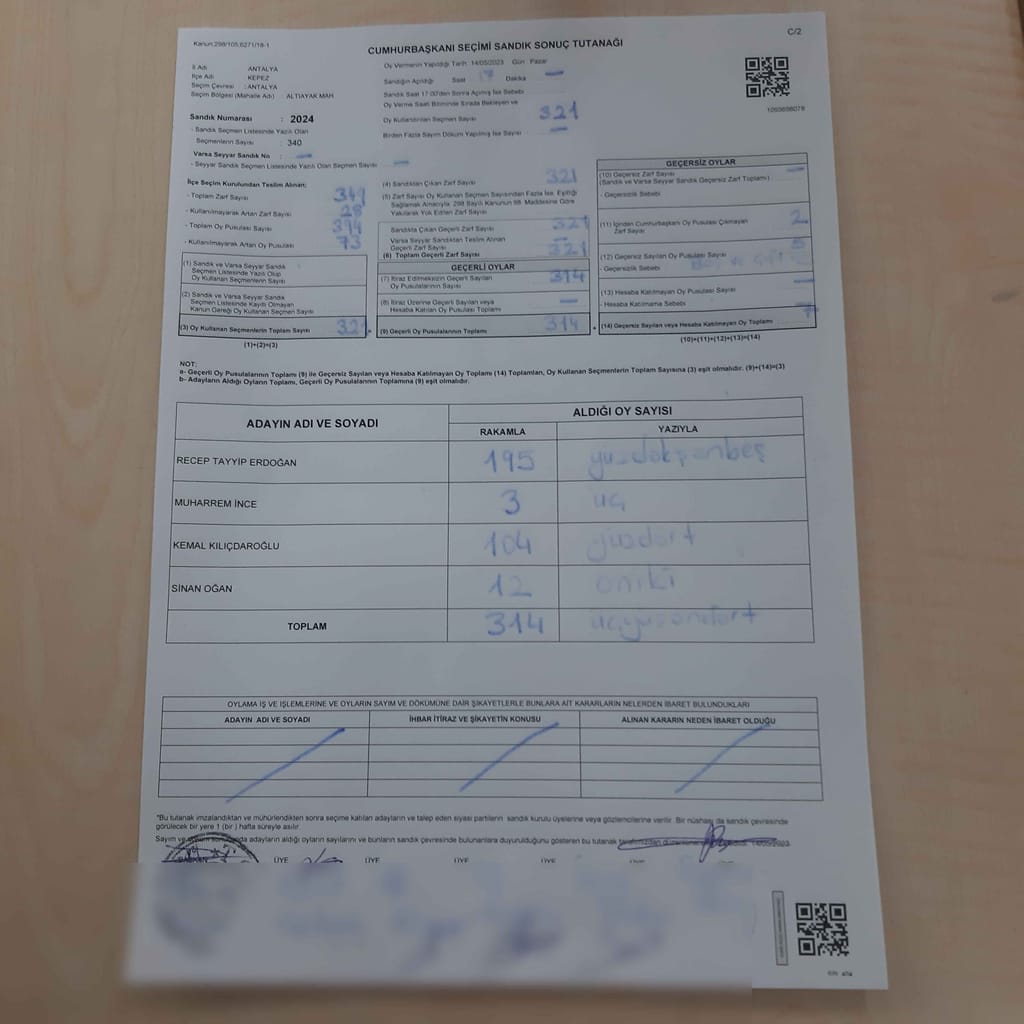 Kanun:298/105;6271/18-1
C/2
CUMHURBAŞKANI SEÇİMİ SANDIK SONUÇ TUTANAĞI
İl Adı ANTALYA
İlçe Adı KEPEZ
Seçim Çevresi : ANTALYA
Seçim Bölgesi (Mahalle Adı) ALTIAYAK MAH
Sandık Numarası : 2024
- Sandık Seçmen Listesinde Yazılı Olan
Seçmenlerin Sayısı : 340
Varsa Seyyar Sandık No : —
- Seyyar Sandık Seçmen Listesinde Yazılı Olan Seçmen Sayısı —
Oy Vermenin Yapıldığı Tarih 14/05/2023 Gün Pazar
Sandığın Açıldığı Saat 17 Dakika —
Sandık Saat 17:00'den Sonra Açılmış İse Sebebi
Oy Verme Saati Bitiminde Sırada Bekleyen ve
Oy Kullandırılan Seçmen Sayısı 321
Birden Fazla Sayım Döküm Yapılmış İse Sayısı —
İlçe Seçim Kurulundan Teslim Alınan;
- Toplam Zarf Sayısı 349
- Kullanılmayarak Artan Zarf Sayısı 28
- Toplam Oy Pusulası Sayısı 394
- Kullanılmayarak Artan Oy Pusulası 73
(1) Sandık ve Varsa Seyyar Sandık
Seçmen Listesinde Yazılı Olup
Oy Kullanan Seçmenlerin Sayısı
(2) Sandık ve Varsa Seyyar Sandık
Seçmen Listesinde Kayıtlı Olmayan
Kanun Gereği Oy Kullanan Seçmen Sayısı
(3) Oy Kullanan Seçmenlerin Toplam Sayısı 321
(1)+(2)=(3)
(4) Sandıktan Çıkan Zarf Sayısı 321
(5) Zarf Sayısı Oy Kullanan Seçmen Sayısından Fazla İse, Eşitliği
Sağlamak Amacıyla; 298 Sayılı Kanunun 98. Maddesine Göre
Yakılarak Yok Edilen Zarf Sayısı
Sandıkta Çıkan Geçerli Zarf Sayısı 321
Varsa Seyyar Sandıktan Teslim Alınan
Geçerli Zarf Sayısı —
(6) Toplam Geçerli Zarf Sayısı 321
GEÇERLİ OYLAR
(7) İtiraz Edilmeksizin Geçerli Sayılan 314
Oy Pusulasının Sayısı
(8) İtiraz Üzerine Geçerli Sayılan veya —
Hesaba Katılan Oy Pusulası Toplam
(9) Geçerli Oy Pusulalarının Toplamı 314
GEÇERSİZ OYLAR
(10) Geçersiz Zarf Sayısı —
(Sandık ve Varsa Seyyar Sandık Geçersiz Zarf Toplamı)
- Geçersizlik Sebebi
(11) İçinden Cumhurbaşkanı Oy Pusulası Çıkmayan 2
Zarf Sayısı
(12) Geçersiz Sayılan Oy Pusulası Sayısı 5
- Geçersizlik Sebebi
(13) Hesaba Katılmayan Oy Pusulası Sayısı —
- Hesaba Katılmama Sebebi
(14) Geçersiz Sayılan veya Hesaba Katılmayan Oy Toplamı 7
(10)+(11)+(12)+(13)=(14)
NOT:
a- Geçerli Oy Pusulalarının Toplamı (9) ile Geçersiz Sayılan veya Hesaba Katılmayan Oy Toplamı (14) Toplamları, Oy Kullanan Seçmenlerin Toplam Sayısına (3) eşit olmalıdır. (9)+(14)=(3)
b- Adayların Aldığı Oyların Toplamı, Geçerli Oy Pusulalarının Toplamına (9) eşit olmalıdır.
ADAYIN ADI VE SOYADI
ALDIĞI OY SAYISI
RAKAMLA YAZIYLA
RECEP TAYYİP ERDOĞAN 195 yüzdoksanbeş
MUHARREM İNCE 3 üç
KEMAL KILIÇDAROĞLU 104 yüzdört
SİNAN OĞAN 12 oniki
TOPLAM 314 üçyüzondört
OYLAMA İŞ VE İŞLEMLERİNE VE OYLARIN SAYIM VE DÖKÜMÜNE DAİR ŞİKAYETLERLE BUNLARA AİT KARARLARIN NELERDEN İBARET BULUNDUKLARI
ADAYIN ADI VE SOYADI İHBAR İTİRAZ VE ŞİKAYETİN KONUSU ALINAN KARARIN NEDEN İBARET OLDUĞU
*Bu tutanak imzalandıktan ve mühürlendikten sonra seçime katılan adayların ve talep eden siyasi partilerin sandık kurulu üyelerine veya gözlemcilerine verilir. Bir nüshası da sandık çevresinde
görülecek bir yere 1 (bir) hafta süreyle asılır.
Sayım ve sonunda adayların aldığı oyların sayılarını ve bunların sandık çevresinde bulunanlara duyurulduğunu gösteren bu tutanak tarafımızdan 14/05/2023
BAŞKAN ÜYE ÜYE ÜYE ÜYE